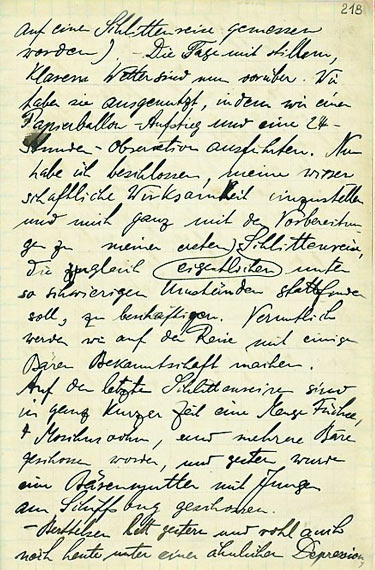 218
auf einer Schlittenreise gemessen
worden) - Die Tage mit stillem,
klarem Wetter sind nun vorüber. Wir
haben sie ausgenutzt, indem wir einen
Papierballon-Aufstieg und eine 24-
Stunden-Observation ausführten. Nun
habe ich beschlossen, meine wissen
schaftliche Wirksamkeit einzustellen
und mich ganz mit den Vorbereitun
gen zu meiner ersten Schlittenreise,
die zugleich eigentlichen unter
so schwierigen Umständen stattfinden
soll, zu beschäftigen. Vermutlich
werden wir auf der Reise mit einigen
Bären Bekanntschaft machen.
Auf den letzten Schlittenreisen sind
in ganz kurzer Zeit eine Menge Füchse,
4 Moschusochsen, und mehrere Bären
geschossen worden, und gestern wurde
eine Bärenmutter mit Jungen
am Schiff geschossen.
- Bertelsen litt gestern und wohl auch
noch heute unter einer ähnlichen Depression,